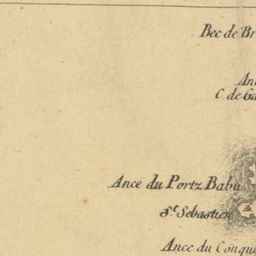 Bec de Br
An
C. de Ga
Ance du Portz Babu
St Sebastien
Ance du Conqu